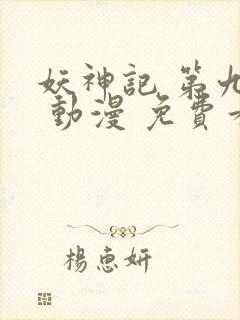 妖神記 第九
動漫 免費
楊惠妍